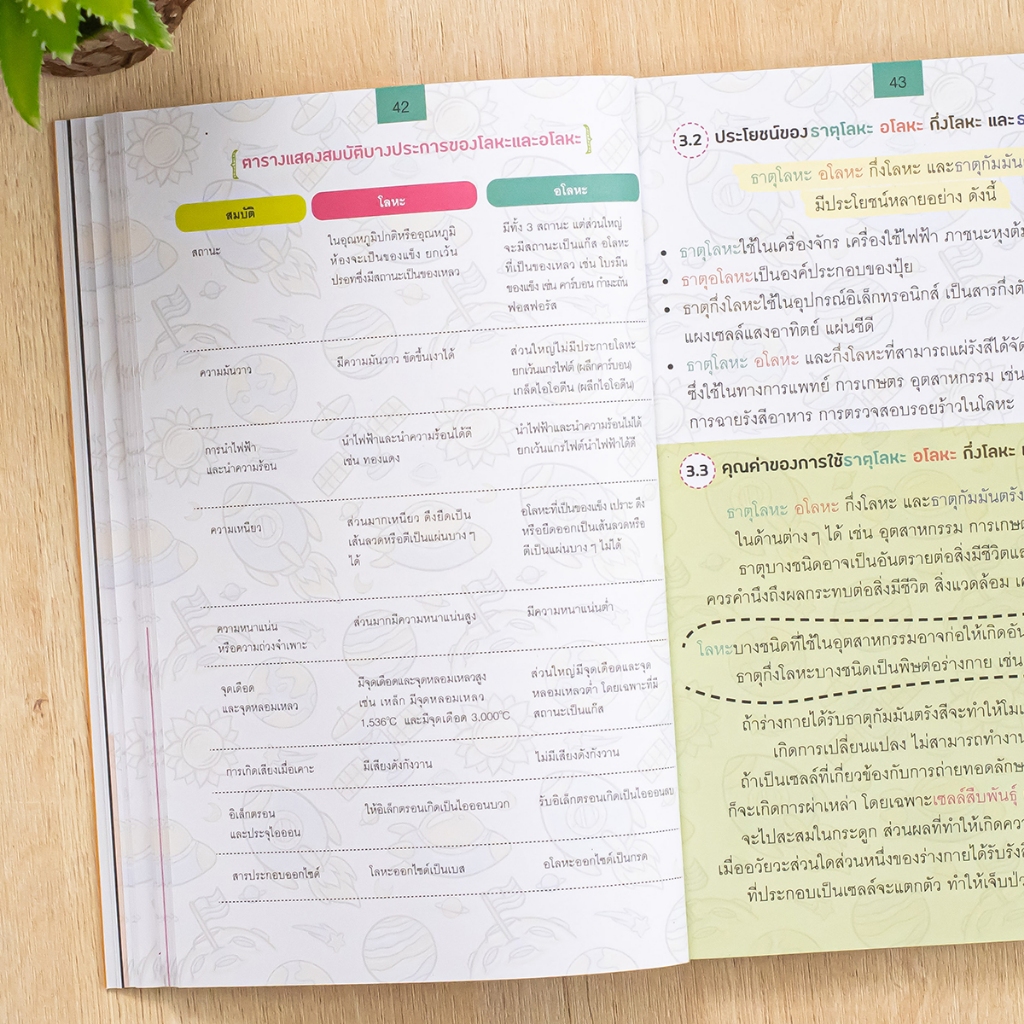 42
ตารางแสดงสมบัติบางประการของโลหะและอโลหะ
สมบัติ
โลหะ
อโลหะ
สถานะ
ในอุณหภูมิปกติหรืออุณหภูมิ
ห้องจะเป็นของแข็ง ยกเว้น
ปรอทซึ่งมีสถานะเป็นของเหลว
มีทั้ง 3 สถานะ แต่ส่วนใหญ่
จะมีสถานะเป็นแก๊ส อโลหะ
ที่เป็นของเหลว เช่น โบรมีน
ของแข็ง เช่น คาร์บอน กำมะถัน
ฟอสฟอรัส
ความมันวาว
มีความมันวาว ขัดขึ้นเงาได้
ส่วนใหญ่ไม่มีประกายโลหะ
ยกเว้นแกรไฟต์ (ผลึกคาร์บอน)
เกล็ดไอโอดีน (ผลึกไอโอดีน)
การนำไฟฟ้า
และนำความร้อน
นำไฟฟ้าและนำความร้อนได้ดี
เช่น ทองแดง
นำไฟฟ้าและความร้อนไม่ได้
ยกเว้นแกรไฟต์นำไฟฟ้าได้ดี
ความเหนียว
ส่วนมากเหนียว ดึงยืดเป็น
เส้นลวดหรือตีเป็นแผ่นบาง ๆ
ได้
อโลหะที่เป็นของแข็ง เปราะ ดึง
หรือยืดออกเป็นเส้นลวดหรือ
ตีเป็นแผ่นบาง ๆ ไม่ได้
ความหนาแน่น
หรือความถ่วงจำเพาะ
ส่วนมากมีความหนาแน่นสูง
มีความหนาแน่นต่ำ
จุดเดือด
และจุดหลอมเหลว
มีจุดเดือดและจุดหลอมเหลวสูง
เช่น เหล็ก มีจุดหลอมเหลว
1,536°C และมีจุดเดือด 3,000°C
ส่วนใหญ่มีจุดเดือดและจุด
หลอมเหลวต่ำ โดยเฉพาะที่มี
สถานะเป็นแก๊ส
การเกิดเสียงเมื่อเคาะ
มีเสียงดังกังวาน
ไม่มีเสียงดังกังวาน
อิเล็กตรอน
และประจุไอออน
ให้อิเล็กตรอนเกิดเป็นไอออนบวก
รับอิเล็กตรอนเกิดเป็นไอออนลบ
สารประกอบออกไซด์
โลหะออกไซด์เป็นเบส
อโลหะออกไซด์เป็นกรด
43
3.2 ประโยชน์ของธาตุโลหะ อโลหะ กึ่งโลหะ และธ
ธาตุโลหะ อโลหะ กึ่งโลหะ และธาตุกัมมัน
มีประโยชน์หลายอย่าง ดังนี้
• ธาตุโลหะใช้ในเครื่องจักร เครื่องใช้ไฟฟ้า ภาชนะหุงต้ม
• ธาตุอโลหะเป็นองค์ประกอบของปุ๋ย
• ธาตุกึ่งโลหะใช้ในอุปกรณ์อิเล็กทรอนิกส์ เป็นสารกึ่งตั
แผงเซลล์แสงอาทิตย์ แผ่นซีดี
• ธาตุโลหะ อโลหะ และกึ่งโลหะที่สามารถแผ่รังสีได้จัด
ซึ่งใช้ในทางการแพทย์ การเกษตร อุตสาหกรรม เช่น
การฉายรังสีอาหาร การตรวจสอบรอยร้าวในโลหะ
3.3 คุณค่าของการใช้ธาตุโลหะ อโลหะ กึ่งโลหะ
ธาตุโลหะ อโลหะ กึ่งโลหะ และธาตุกัมมันตรัง
ในด้านต่าง ๆ ได้ เช่น อุตสาหกรรม การเกษ
ธาตุบางชนิดอาจเป็นอันตรายต่อสิ่งมีชีวิตแล
ควรคำนึงถึงผลกระทบต่อสิ่งมีชีวิต สิ่งแวดล้อม
โลหะบางชนิดที่ใช้ในอุตสาหกรรมอาจก่อให้เกิดอัน
ธาตุกึ่งโลหะบางชนิดเป็นพิษต่อร่างกาย เช่น
ถ้าร่างกายได้รับธาตุกัมมันตรังสีจะทำให้โม
เกิดการเปลี่ยนแปลง ไม่สามารถทำงาน
ถ้าเป็นเซลล์ที่เกี่ยวข้องกับการถ่ายทอดลักษ
ก็จะเกิดการผ่าเหล่า โดยเฉพาะเซลล์สืบพันธุ์
จะไปสะสมในกระดูก ส่วนผลที่ทำให้เกิดคว
เมื่ออวัยวะส่วนใดส่วนหนึ่งของร่างกายได้รับรังสี
ที่ประกอบเป็นเซลล์จะแตกตัว ทำให้เจ็บป่ว